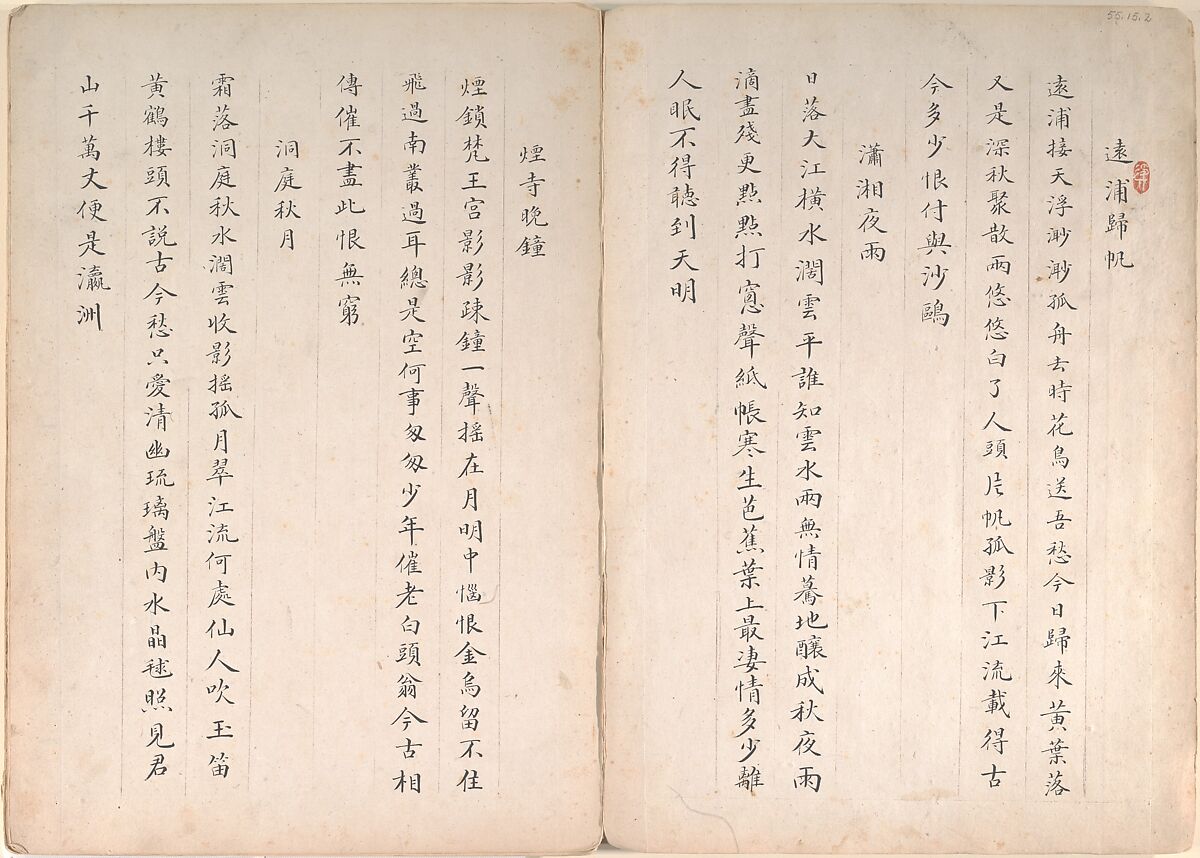 55.15.2
遠浦歸帆
遠浦接天浮渺渺孤舟去時花鳥送吾愁今日歸來黃葉落
又是深秋聚散兩悠悠白了人頭片帆孤影下江流載得古
今多少恨付與沙鷗
瀟湘夜雨
日落大江橫水濶雲平誰知雲水兩無情驀地釀成秋夜雨
滴盡殘更點點打窻聲紙帳寒生芭蕉葉上最凄情多少離
人眠不得聽到天明
煙寺晚鐘
煙鎖梵王宮影影疎鐘一聲搖在月明中惱恨金烏留不住
飛過南叢過耳總是空何事匆匆少年催老白頭翁今古相
傳催不盡此恨無窮
洞庭秋月
霜落洞庭秋水濶雲收影搖孤月翠江流何處仙人吹玉笛
黃鶴樓頭不說古今愁只愛清幽琉璃盤內水晶毬照見君
山千萬丈便是瀛洲